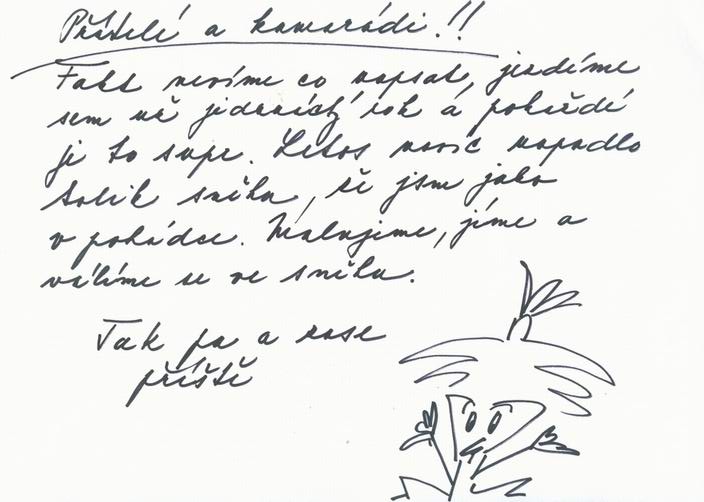 Přátelé a kamarádi!!
Fakt nevíme co napsat, jezdíme
sem už jedenáctý rok a pokaždé
je to supr. Letos navíc napadlo
tolik sněhu, že jsme jako
v pohádce. Malujeme, jíme a
válíme se ve sněhu.
Tak pa a zase
příště